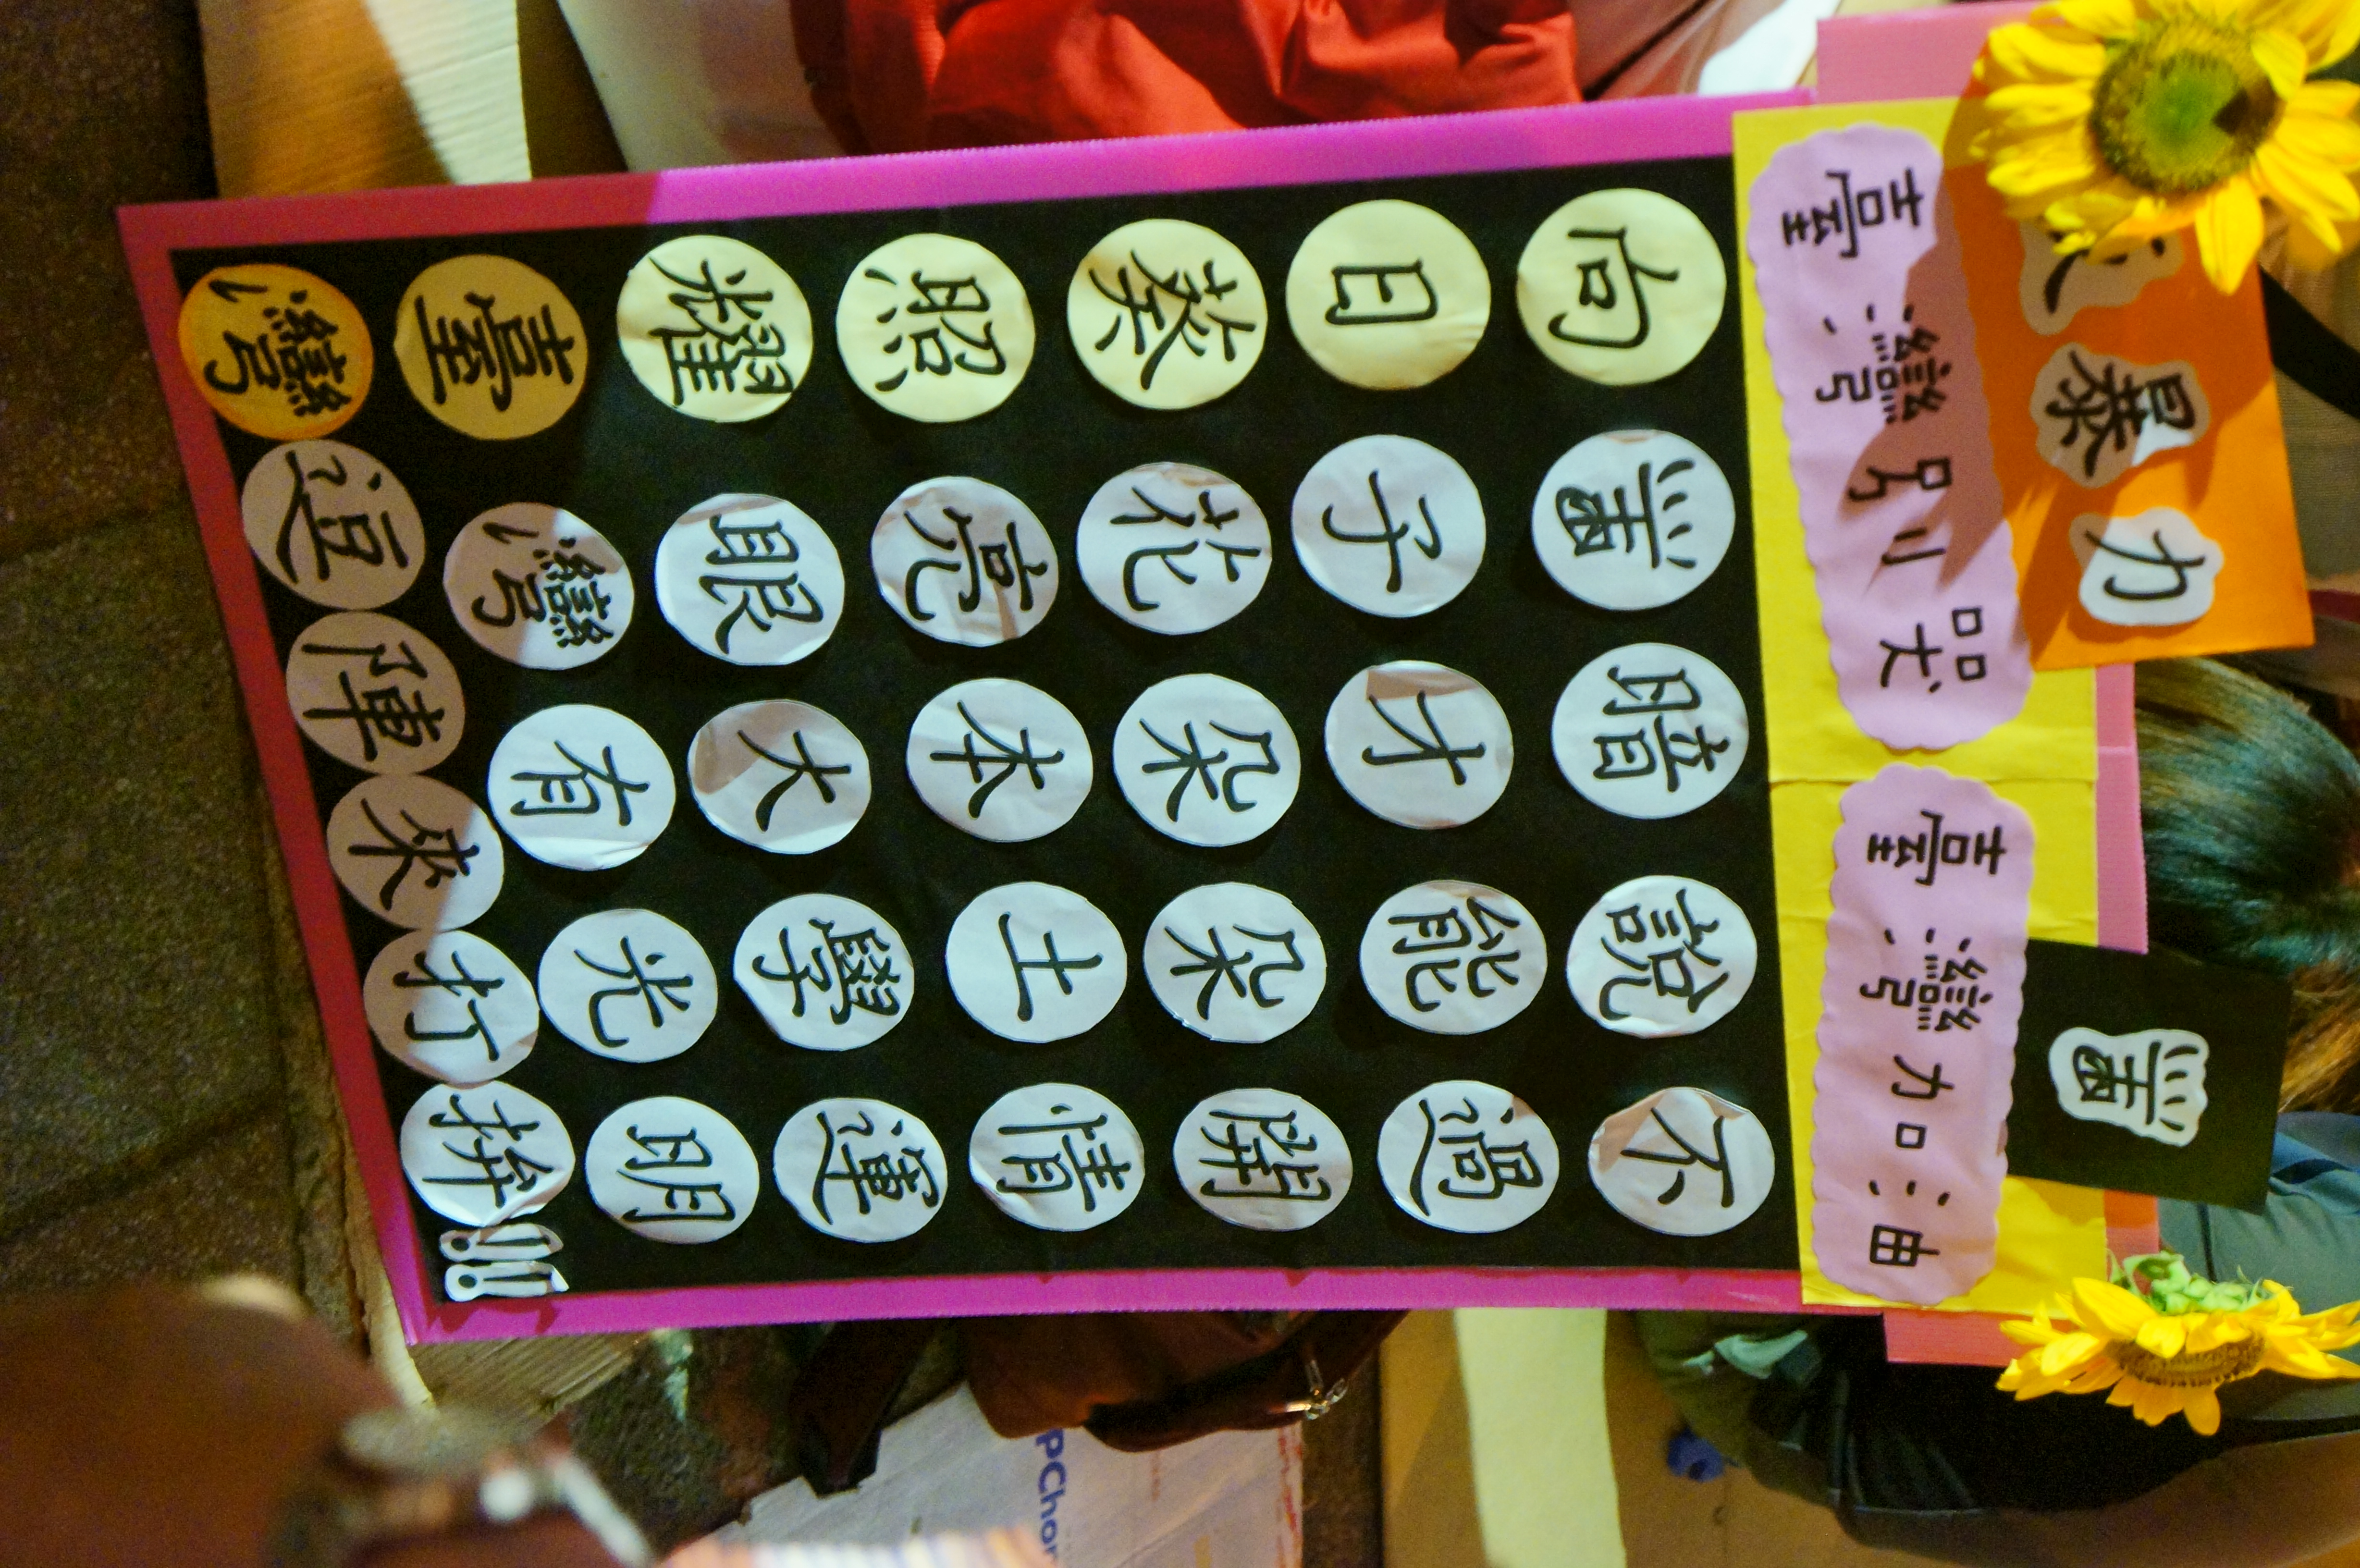 暴力 黑
臺灣別哭 臺灣加油
向黑暗說不
日子才能過
葵花朵朵開
照亮本土情
耀眼大學運
臺灣有光明
灣逗陣來打拚!!
PCho